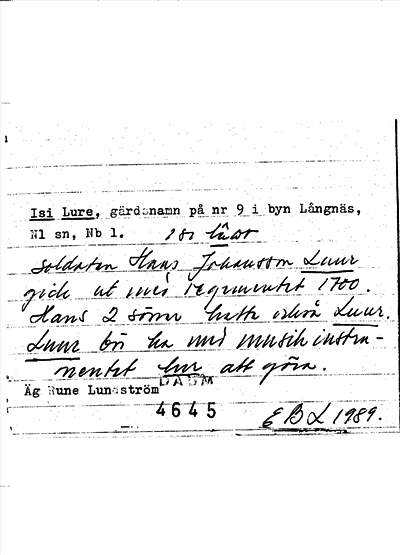 Isi Lure, gårdsnamn på nr 9 i byn Långnäs,
Nl sn, Nb l.
soldaten Hans Johansson Luur
gick ut med regementet 1700.
Hans 2 söner hette också Luur.
Luur bör ha med musikinstru-
mentet lur att göra.
Äg Rune Lundström
DASM
4645
EBL 1989.